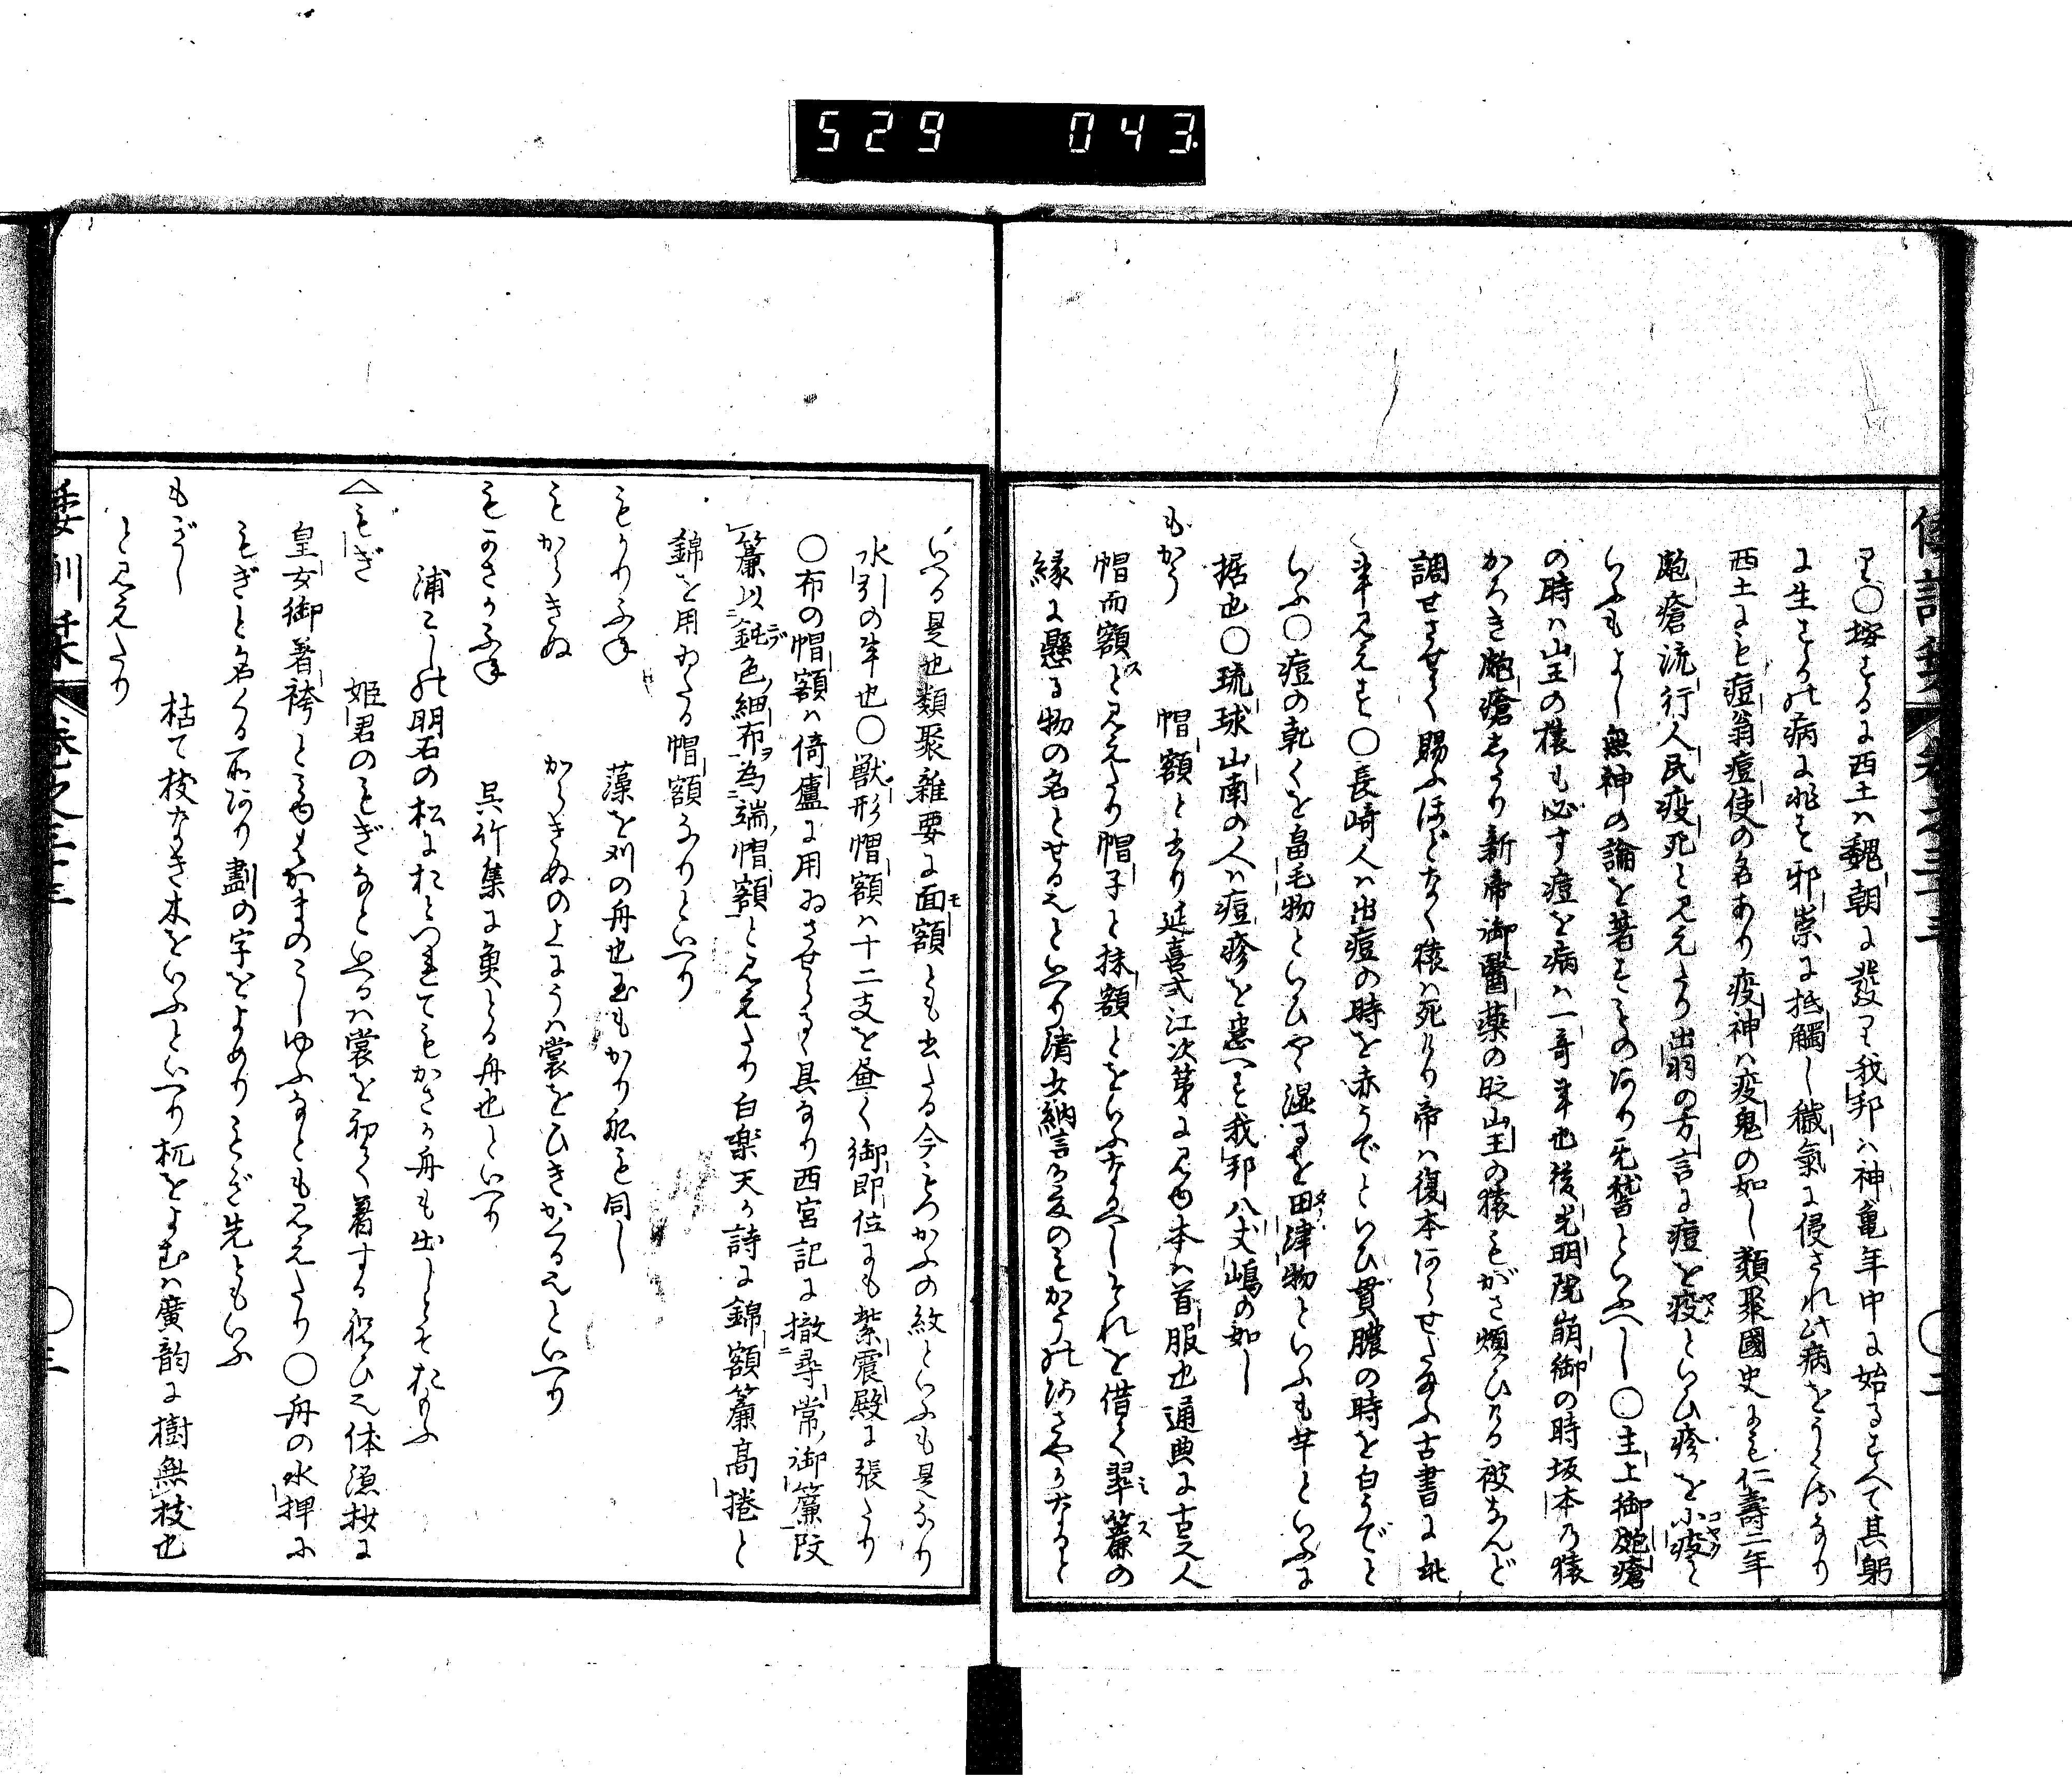 529 043
り〇按するに西土ハ魏朝に發り我邦ハ神亀年中に始るすへて其躬
に生するの病に非す邪祟に抵觸し穢氣に侵されハ此病をうくるなり
西土にも痘翁痘使の名あり疫神ハ疫鬼の如し類聚國史にも仁壽二年
皰瘡流行人民疫死と見えたり出羽の方言に痘を疫といひ疹を小疫と
いふもよし無神の論を著すものあり无稽といふへし〇主上御皰瘡
の時ハ山王の猿も必す痘を病ハ一奇事也後光明院崩御の時坂本乃猿
かろき皰瘡しけり新帝御醫薬の時山王の猿もがさ煩ひける被なんど
調せさせて賜ふほどなく猿ハ死けり帝ハ復本ならせたまふ古書に此
事見えす〇長崎人ハ出痘の時を赤うでといひ貫膿の時を白うでと
いふ〇痘の乾くを畠毛物といひやゝ湿るを田津物といふも芋といふに
据也〇琉球山南の人ハ痘疹を患へす我邦八丈嶋の如し
もかう 帽額と書り延喜式江次第に見ゆ本ハ首服也通典に古之人
帽而額スと見えたり帽子と抹額とをいふなるへしそれを借て翠簾の
縁に懸る物の名とせる也といへり清女納言か愛のもかうのあさやかなると
いへる是也類聚雜要に面額とも書たる今もつかふの紋といふも是なり
水引の事也〇獣形帽額ハ十二支を畫く御即位にも紫震殿に張たり
〇布の帽額ハ倚廬に用ゐさせらるゝ具なり西宮記に撤尋常御簾改
簾以鈍色細布為端帽額と見えたり白楽天か詩に錦額簾高捲と
錦を用ゐたる帽額なりといへり
もかりふね 藻を刈の舟也玉もかり船も同し
もからきぬ からきぬの上にうハ裳をひきかくる也といへり
もかさかふね 呉竹集に魚とる舟也といへり
浦こしの明石の松におとつれてもかさか舟も出しとそおもふ
もぎ 姫君のもぎなどいへるハ裳を初て着する祝ひ也体源抄に
皇女御著袴とも見ゆはかまのうしゆふなとも見えたり〇舟の水押に
もぎと名くる所あり劃の字をよめりもぎ先ともいふ
もぎし 枯て枝なき木をいふといへり杌をよむハ廣韵に樹無枝也
と見えたり
倭訓栞 巻之三十三 〇三